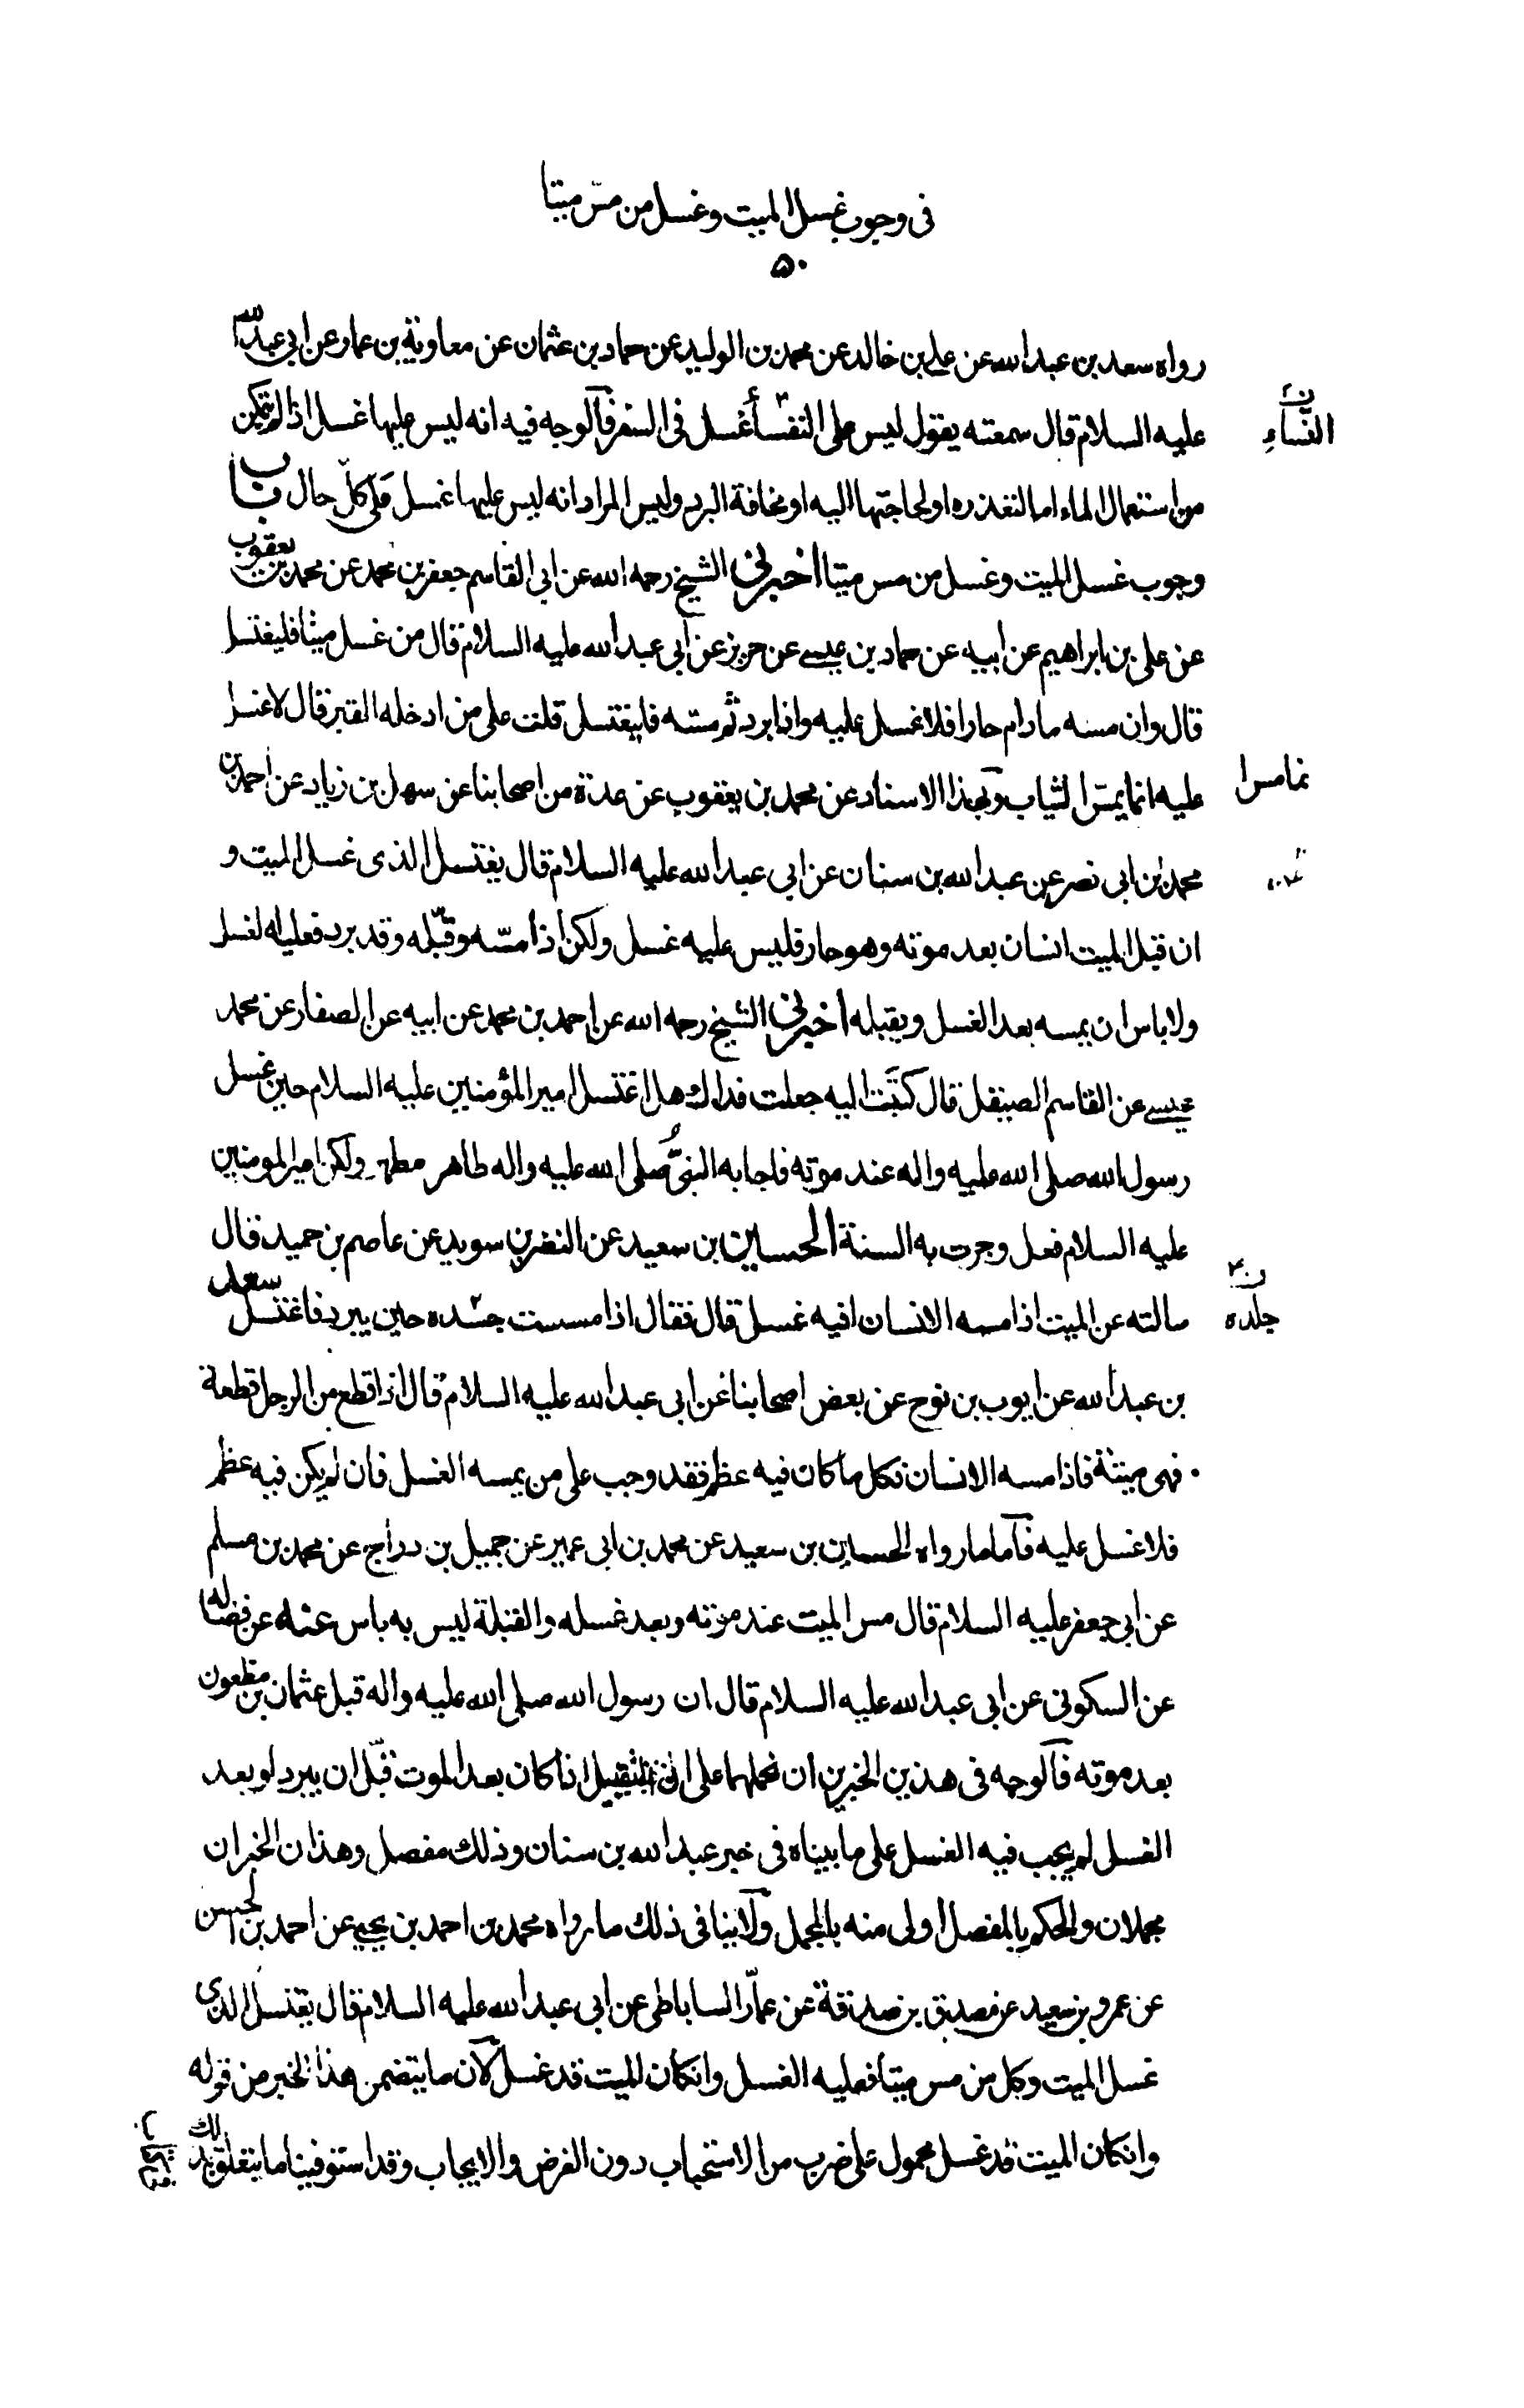 فى وجوب غسل الميت وغسل من مسّ ميتا
۵۰
رواه سعد بن عبد الله عن على بن خالد عن محمد بن الوليد عن حماد بن عثمان عن معاوية بن عمار عن ابى عبد الله
عليه السلام قال سمعته يقول ليس على النفسأ غسل فى السفر فالوجه فيه انه ليس عليها غسل اذا لم يتمكن
النساء
من استعمال الماء اما لتعذره او لحاجتها اليه او مخافة البرد وليس المراد انه ليس عليها غسل على كلّ حال باب
وجوب غسل الميت وغسل من مس ميتا اخبرنى الشيخ رحمه الله عن ابى القاسم جعفر بن محمد عن محمد بن يعقوب
عن على بن ابراهيم عن ابيه عن حماد بن عيسى عن حريز عن ابى عبد الله عليه السلام قال من غسل ميتا فليغتسل
قال وان مسه ما دام حارا فلا غسل عليه واذا برد ثم مسّه فليغتسل قلت على من ادخله القبر قال لا غسل
عليه انما يمسّ الثياب وبهذا الاسناد عن محمد بن يعقوب عن عدة من اصحابنا عن سهل بن زياد عن احمد بن
محمد بن ابى نصر عن عبد الله بن سنان عن ابى عبد الله عليه السلام قال يغتسل الذى غسل الميت و
ان قبل الميت انسان بعد موته وهو حار فليس عليه غسل ولكن اذا مسّه وقبّله وقد برد فعليه الغسل
ولا باس ان يمسه بعد الغسل ويقبله اخبرنى الشيخ رحمه الله عن احمد بن محمد عن ابيه عن الصفار عن محمد
عيسى عن القاسم الصيقل قال كتبت اليه جعلت فداك هل اغتسل امير المؤمنين عليه السلام حين غسل
رسول الله صلى الله عليه واله عند موته فاجابه النبىّ صلى الله عليه واله طاهر مطهر ولكن امير المومنين
عليه السلام فعل وجرت به السنة الحسين بن سعيد عن النضر بن سويد عن عاصم بن حميد قال
سالته عن الميت اذا مسه الانسان افيه غسل قال فقال اذا مسست جسده حين يبرد فاغتسل سعد
جلده
بن عبد الله عن ايوب بن نوح عن بعض اصحابنا عن ابى عبد الله عليه السلام قال اذا قطع من الرجل قطعة
فهى ميتة فاذا مسه الانسان فكل ما كان فيه عظم فقد وجب على من يمسه الغسل فان لم يكن فيه عظم
فلا غسل عليه فاما ما رواه الحسين بن سعيد عن محمد بن ابى عمير عن جميل بن دراج عن محمد بن مسلم
عن ابى جعفر عليه السلام قال مس الميت عند موته وبعد غسله والقبلة ليس به باس عنه عن فضاله
عن السكونى عن ابى عبد الله عليه السلام قال ان رسول الله صلى الله عليه واله قبل عثمان بن مظعون
بعد موته فالوجه فى هذين الخبرين ان نحملهما على ان التقبيل اذا كان بعد الموت قبل ان يبرد او بعد
الغسل لم يجب فيه الغسل على ما بيناه فى خبر عبد الله بن سنان وذلك مفصل وهذان الخبران
مجملان والحكم بالمفصل اولى منه بالمجمل ولا ينافى ذلك ما رواه محمد بن احمد بن يحيى عن احمد بن الحسن
عن عمرو بن سعيد عن مصدق بن صدقة عن عمّار الساباطى عن ابى عبد الله عليه السلام قال يغتسل الذى
غسل الميت وكل من مس ميتا فعليه الغسل وان كان الميت قد غسل لان ما يتضمن هذا الخبر من قوله
وان كان الميت قد غسل محمول على ضرب من الاستحباب دون الفرض والايجاب وقد استوفينا ما يتعلق بذلك